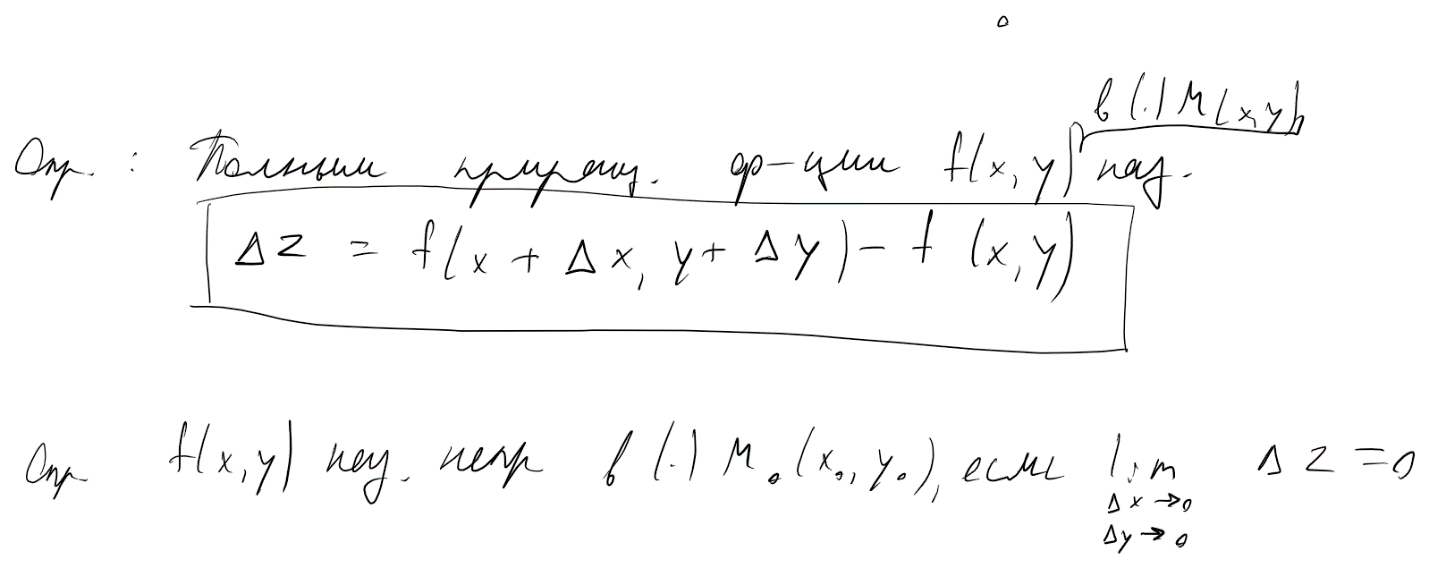 Опр. : Полным приращ. ф-ции f(x, y) в (.) M(x, y) наз.
Δz = f(x + Δx, y + Δy) - f (x, y)
Опр. f(x, y) наз. непр в (.) M₀(x₀, y₀), если lim Δz = 0
Δx → 0
Δy → 0